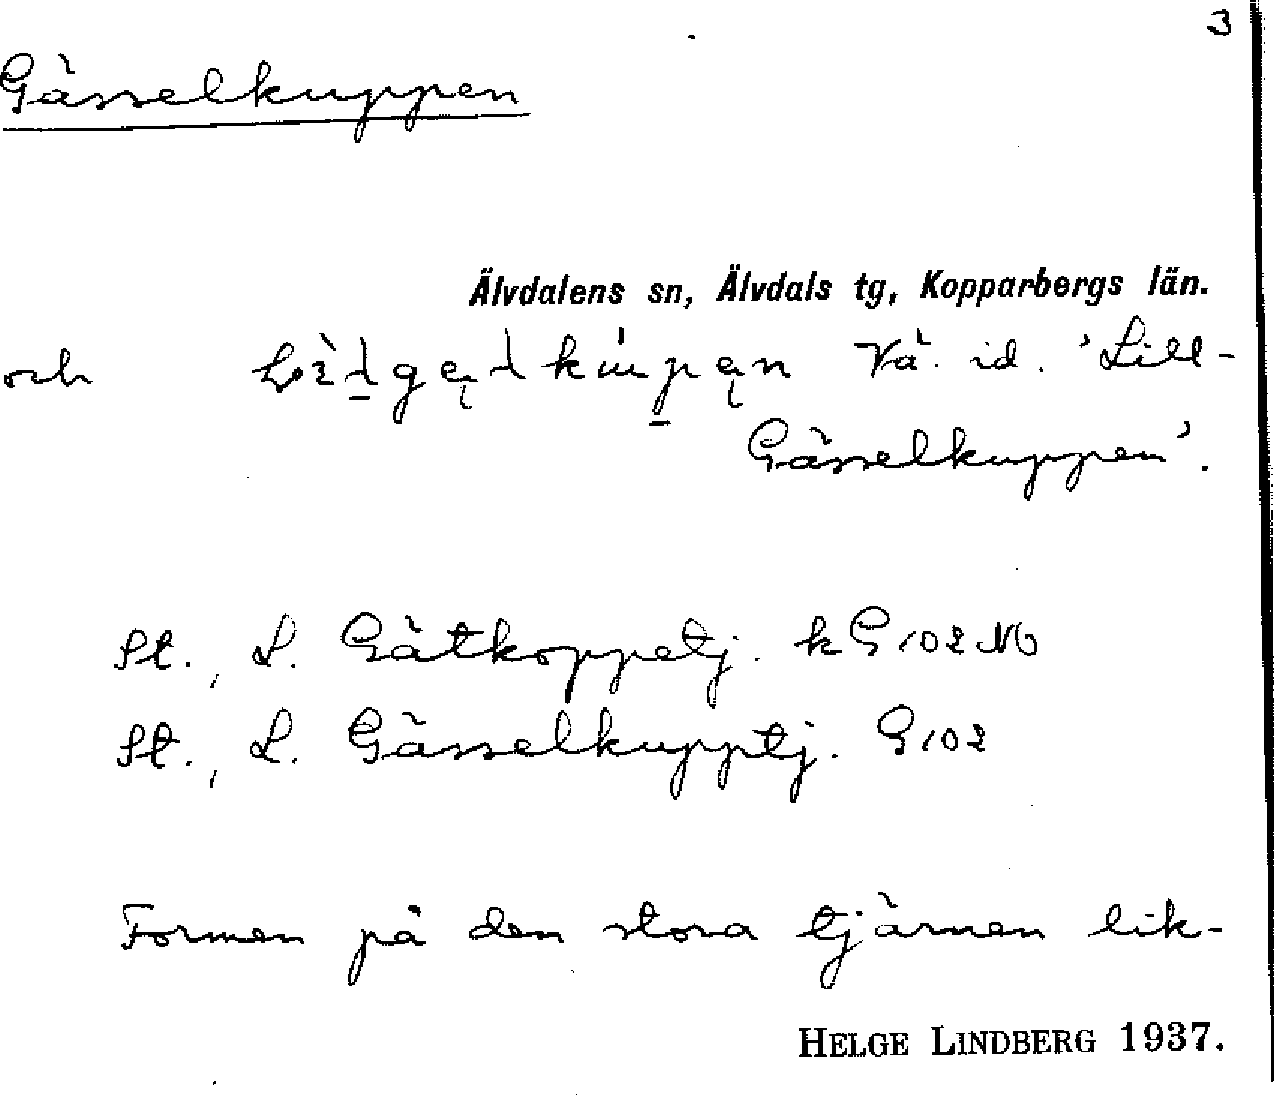 3
Gässelkuppen
Älvdalens sn, Älvdals tg, Kopparbergs län.
och Vå. id. 'Lill-
Gässelkuppen'.
St., L. Gätkoppetj. k G 102 NO
St., L. Gässelkupptj. G 102
Formen på den stora tjärnen lik-
HELGE LINDBERG 1937.